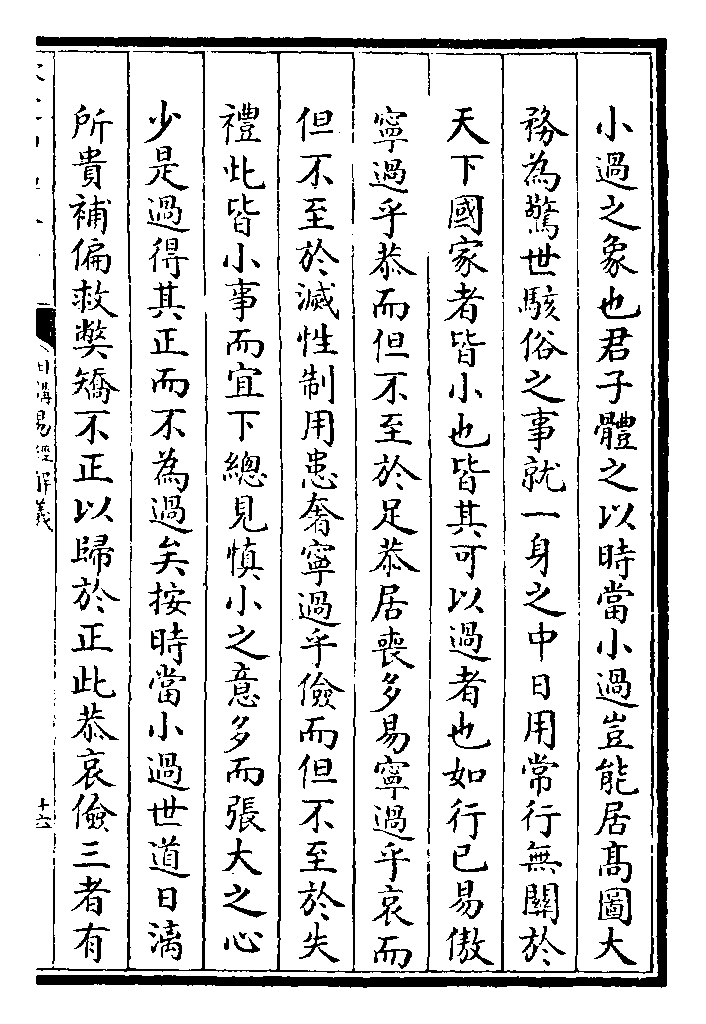 小過之象也君子體之以時當小過豈能居髙圖大
務為驚世駭俗之事就一身之中日用常行無關於
天下國家者皆小也皆其可以過者也如行已易傲
寧過乎恭而但不至於足恭居喪多易寧過乎哀而
但不至於滅性制用患奢寧過乎儉而但不至於失
禮此皆小事而宜下總見慎小之意多而張大之心
少是過得其正而不為過矣按時當小過世道日漓
所貴補偏救弊矯不正以歸於正此恭哀儉三者有
日講易經解義
十六